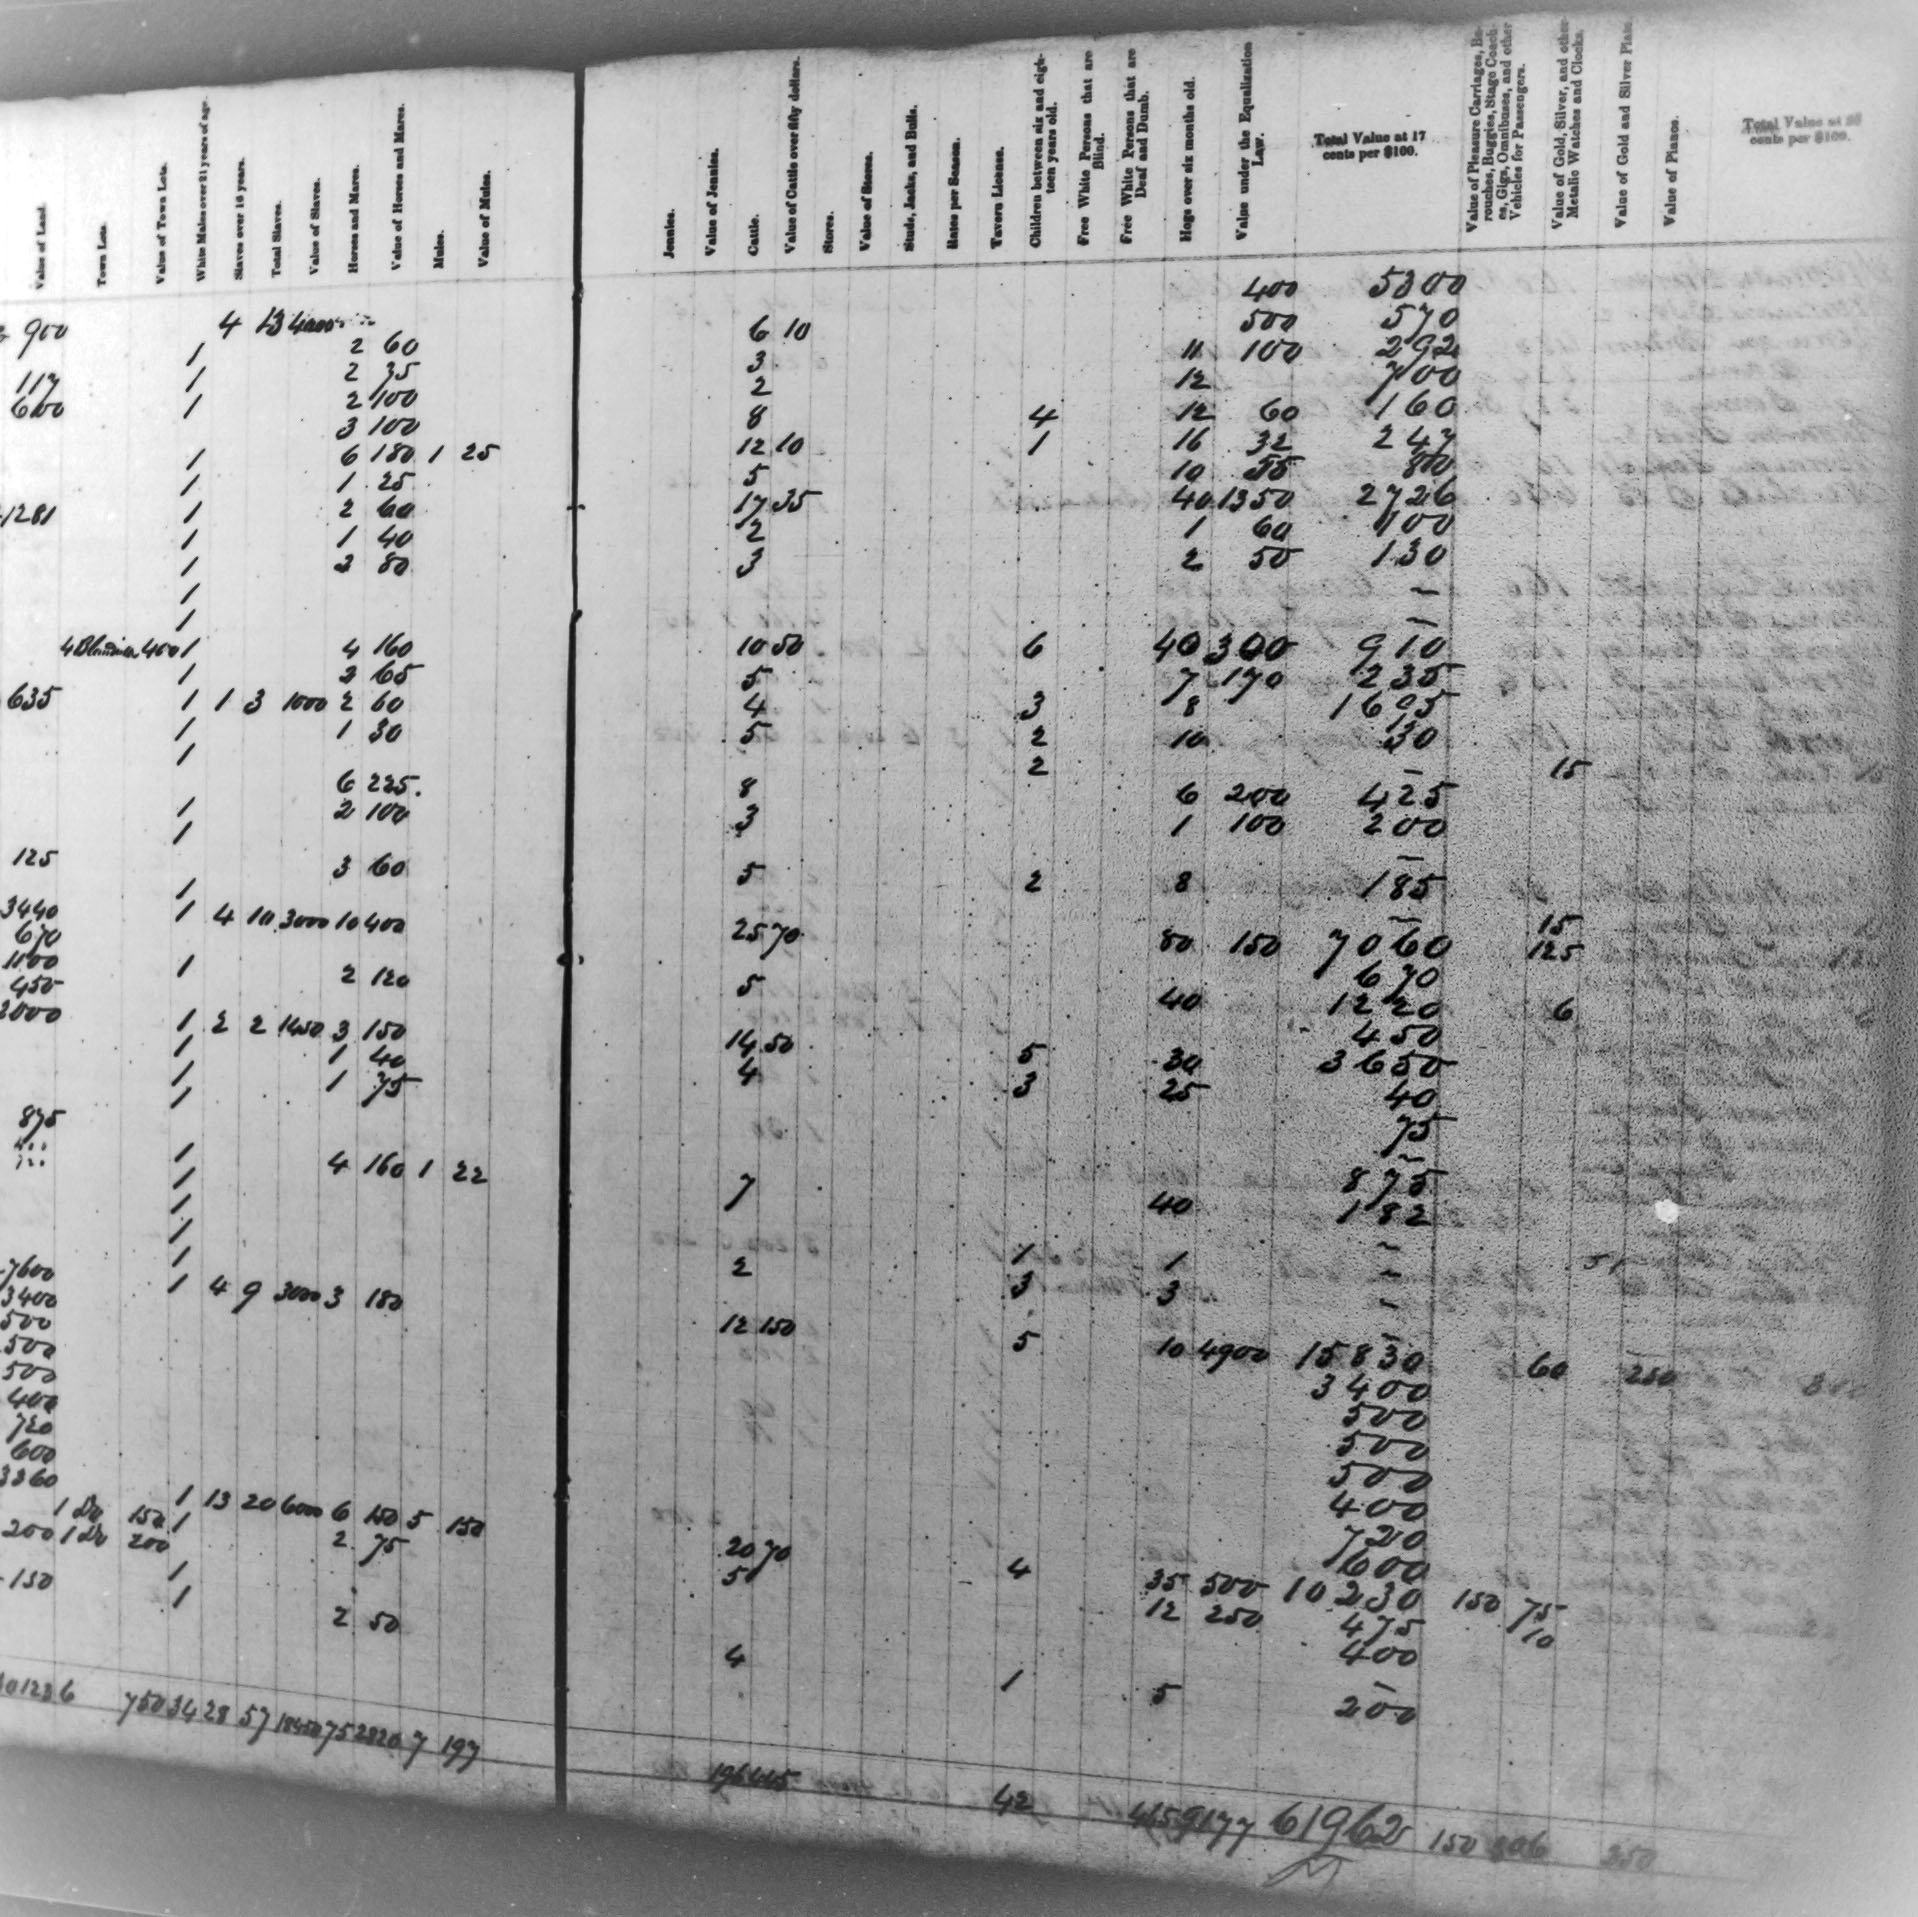 Value of Land.
Town Lots.
Value of Town Lots.
White Males over 21 years of age.
Slaves over 16 years.
Total Slaves.
Value of Slaves.
Horses and Mares.
Value of Horses and Mares.
Mules.
Value of Mules.
Jennies.
Value of Jennies.
Cattle.
Value of Cattle over fifty dollars.
Stores.
Value of Stores.
Studs, Jacks, and Bulls.
Rates per Season.
Tavern License.
Children between six and eigh-
teen years old.
Free White Persons that are
Blind.
Free White Persons that are
Deaf and Dumb.
Hogs over six months old.
Value under the Equalization
Law.
Total Value at 17
cents per $100.
Value of Pleasure Carriages, Ba-
rouches, Buggies, Stage Coach-
es, Gigs, Omnibuses, and other
Vehicles for Passengers.
Value of Gold, Silver, and other
Metalic Watches and Clocks.
Value of Gold and Silver Plate.
Value of Pianos.
Total Value at
cents per $100.
900 4 13 4000 6 10 400 5300
1 2 60 3 500 570
117 1 2 75 2 11 100 292
600 1 2 100 8 12 700
3 100 4 12 60 160
1 6 180 1 25 12 10 1 16 32 247
1 1 25 5 10 55 80
1281 1 2 60 17 35 40 1350 2726
1 1 40 2 1 60 100
1 2 80 3 2 50 130
1 –
1 –
400 1 4 160 10 50 6 40 300 910
1 2 65 5 7 170 235
635 1 1 3 1000 2 60 4 3 8 1695
1 1 30 5 2 10 30
1 2 – 15
6 225 8 6 200 425
1 2 100 3 1 100 200
1 –
125 3 60 5 2 8 185
1 – 15
3440 1 4 10 3000 10 400 25 70 80 150 7060 125
670 670
1100 1 2 120 5 40 1220 6
450 450
2000 1 2 2 1450 3 150 14 50 5 30 3650
1 1 40 4 3 25 40
1 1 75 75
1 –
875 875
1 4 160 1 22 7 40 182
1 –
1 2 1 1 –
1 3 3 –
1 –
7600 1 4 9 3000 3 180 12 150 5 10 4900 15830 60 250
3400 3400
500 500
500 500
500 500
400 400
720 720
600 600
3360 1 13 20 6000 6 150 5 150 20 70 4 35 500 10230 150 75
1 Do 150 1 2 75 5 12 250 475 10
200 1 Do 200 400
1 –
150 1 2 50 4 1 5 200
750 34 28 57 18450 75 2820 7 197 42 9177 61962 150 250